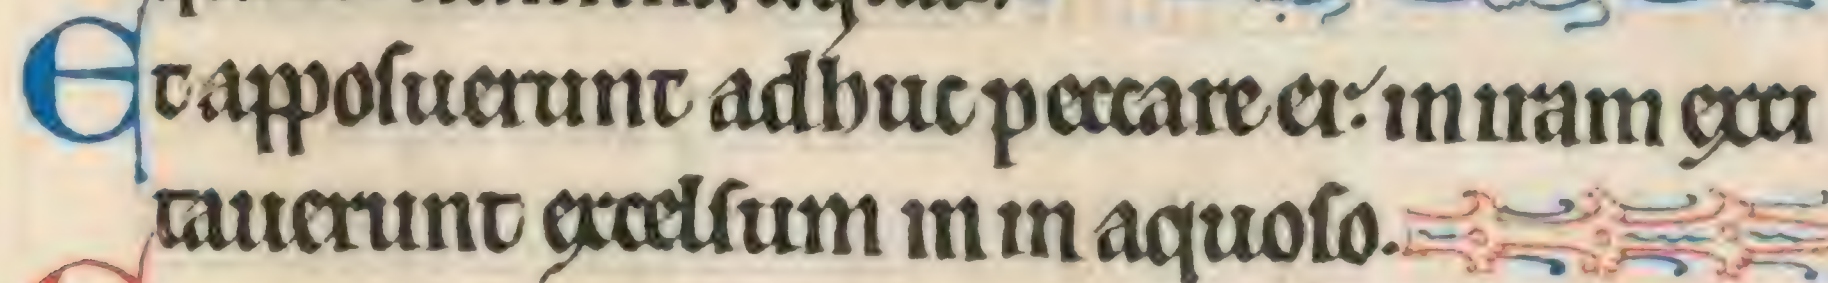 Et apposuerunt adhuc peccare ei: in iram exci
tauerunt excelsum in in aquoso.